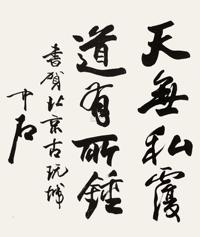 天無私覆
道有所鍾
書賀北京古玩城
中石